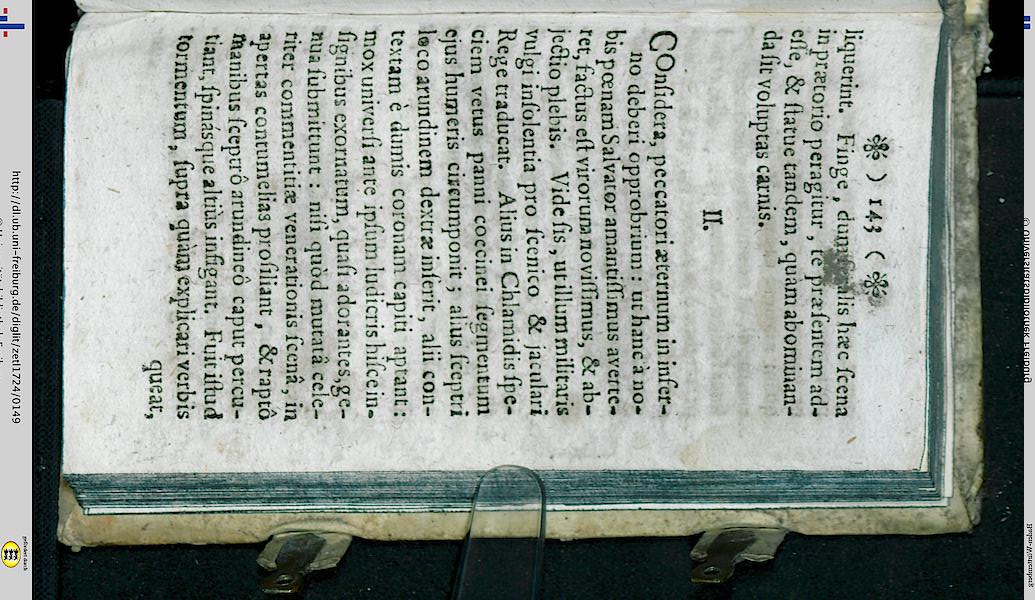 ❀ ) 143 ( ❀
liquerint. Finge, dum talis hæc scena
in prætorio peragitur, te præsentem ad-
esse, & statue tandem, quam abominan-
da sit voluptas carnis.
II.
COnsidera, peccatori æternum in infer-
no deberi opprobrium: ut hanc à no-
bis pœnam Salvator amantissimus averte-
ret, factus est virorum novissimus, & ab-
jectio plebis. Vide sis, ut illum militaris
vulgi insolentia pro scenico & jaculari
Rege traducat. Alius in Chlamidis spe-
ciem vetus panni coccinei segmentum
ejus humeris circumponit; alius sceptri
loco arundinem dextræ inserit, alii con-
textam è dumis coronam capiti aptant:
mox universi ante ipsum ludicris hisce in-
signibus exornatum, quasi adorantes, ge-
nua submittunt: nisi quòd mutatâ cele-
riter commentitiæ venerationis scenâ, in
apertas contumelias prosiliant, & raptô
manibus sceptrô arundineô caput percu-
tiant, spinásque altiùs infigant. Fuit istud
tormentum, supra quàm explicari verbis
queat,
http://dl.ub.uni-freiburg.de/diglit/zetl1724/0149
© Universitätsbibliothek Freiburg
gefördert durch